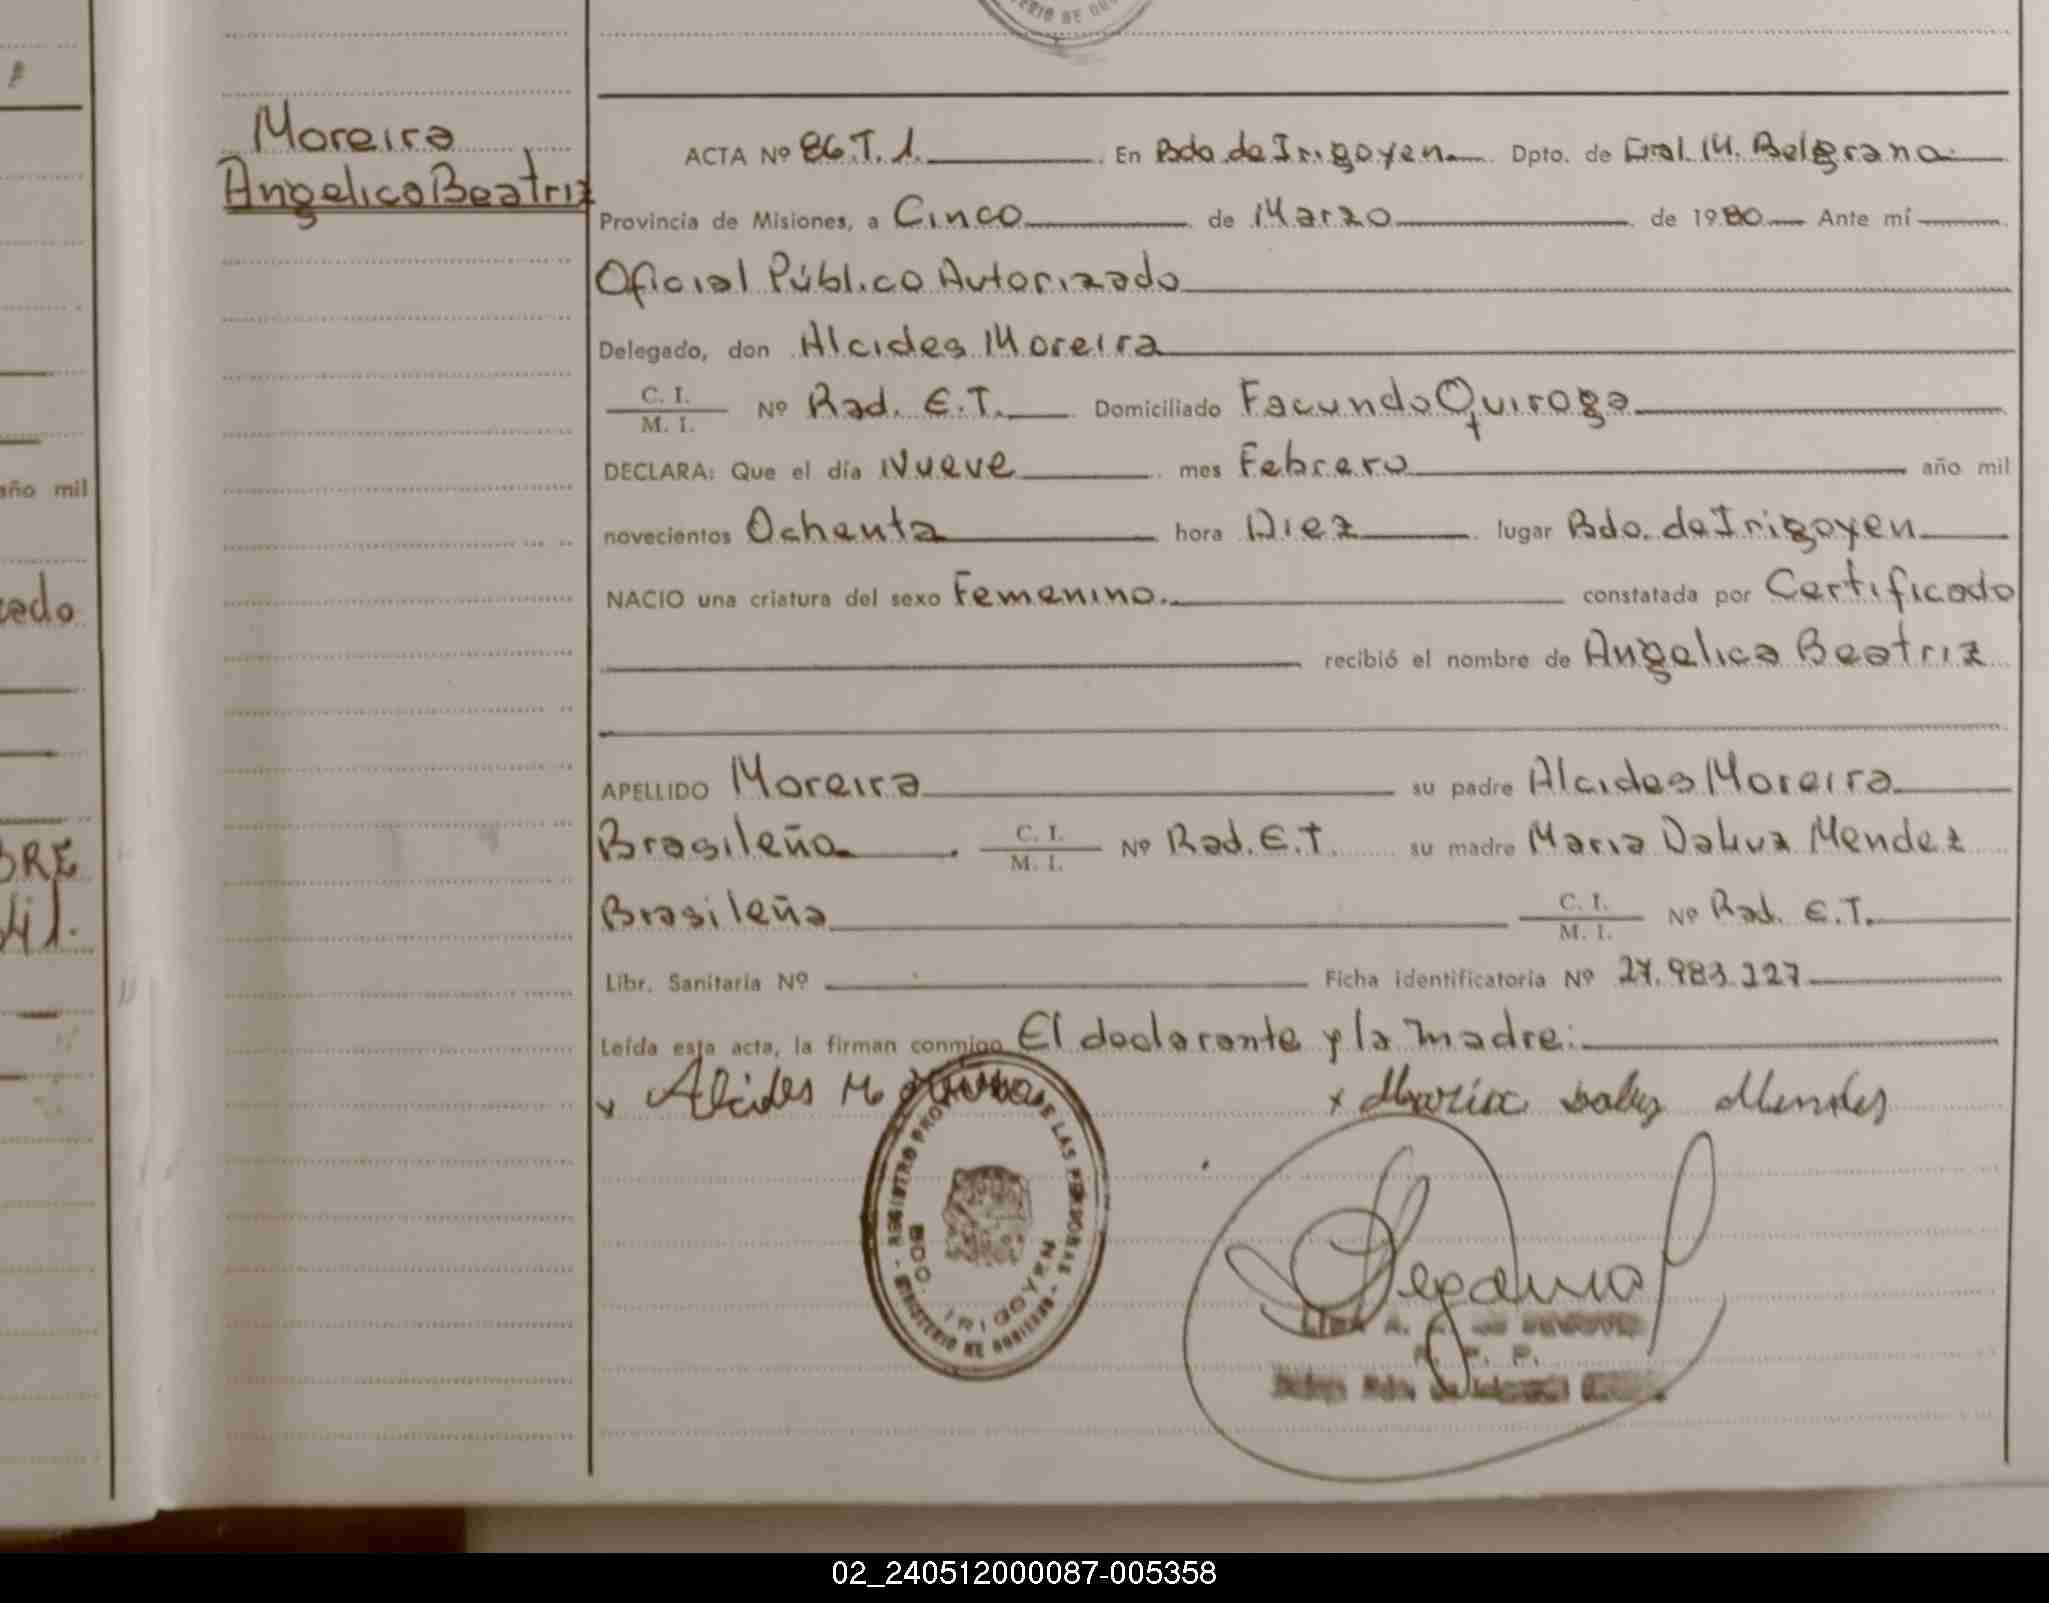 Moreira
Angelica Beatriz
ACTA Nº 86.T.1. En Bdo. de Irigoyen. Dpto. de Gral. M. Belgrano.
Provincia de Misiones, a Cinco de Marzo de 1980 Ante mí
Oficial Público Autorizado
Delegado, don Alcides Moreira
C. I. / M. I. Nº Rad. E.T. Domiciliado Facundo Quiroga
DECLARA: Que el día Nueve mes Febrero año mil
novecientos Ochenta hora Diez lugar Bdo. de Irigoyen
NACIO una criatura del sexo Femenino. constatada por Certificado
recibió el nombre de Angelica Beatriz
APELLIDO Moreira su padre Alcides Moreira
Brasileña C. I. / M. I. Nº Rad. E.T. su madre Maria Daluz Mendez
Brasileña C. I. / M. I. Nº Rad. E.T.
Libr. Sanitaria Nº Ficha identificatoria Nº 27.983.127
Leída esta acta, la firman conmigo El declarante y la madre:
x Alcides M x Maria daluz Mendes
REGISTRO DE LAS PERSONAS
BDO. IRIGOYEN
MINISTERIO DE GOBIERNO
año mil
02_240512000087-005358